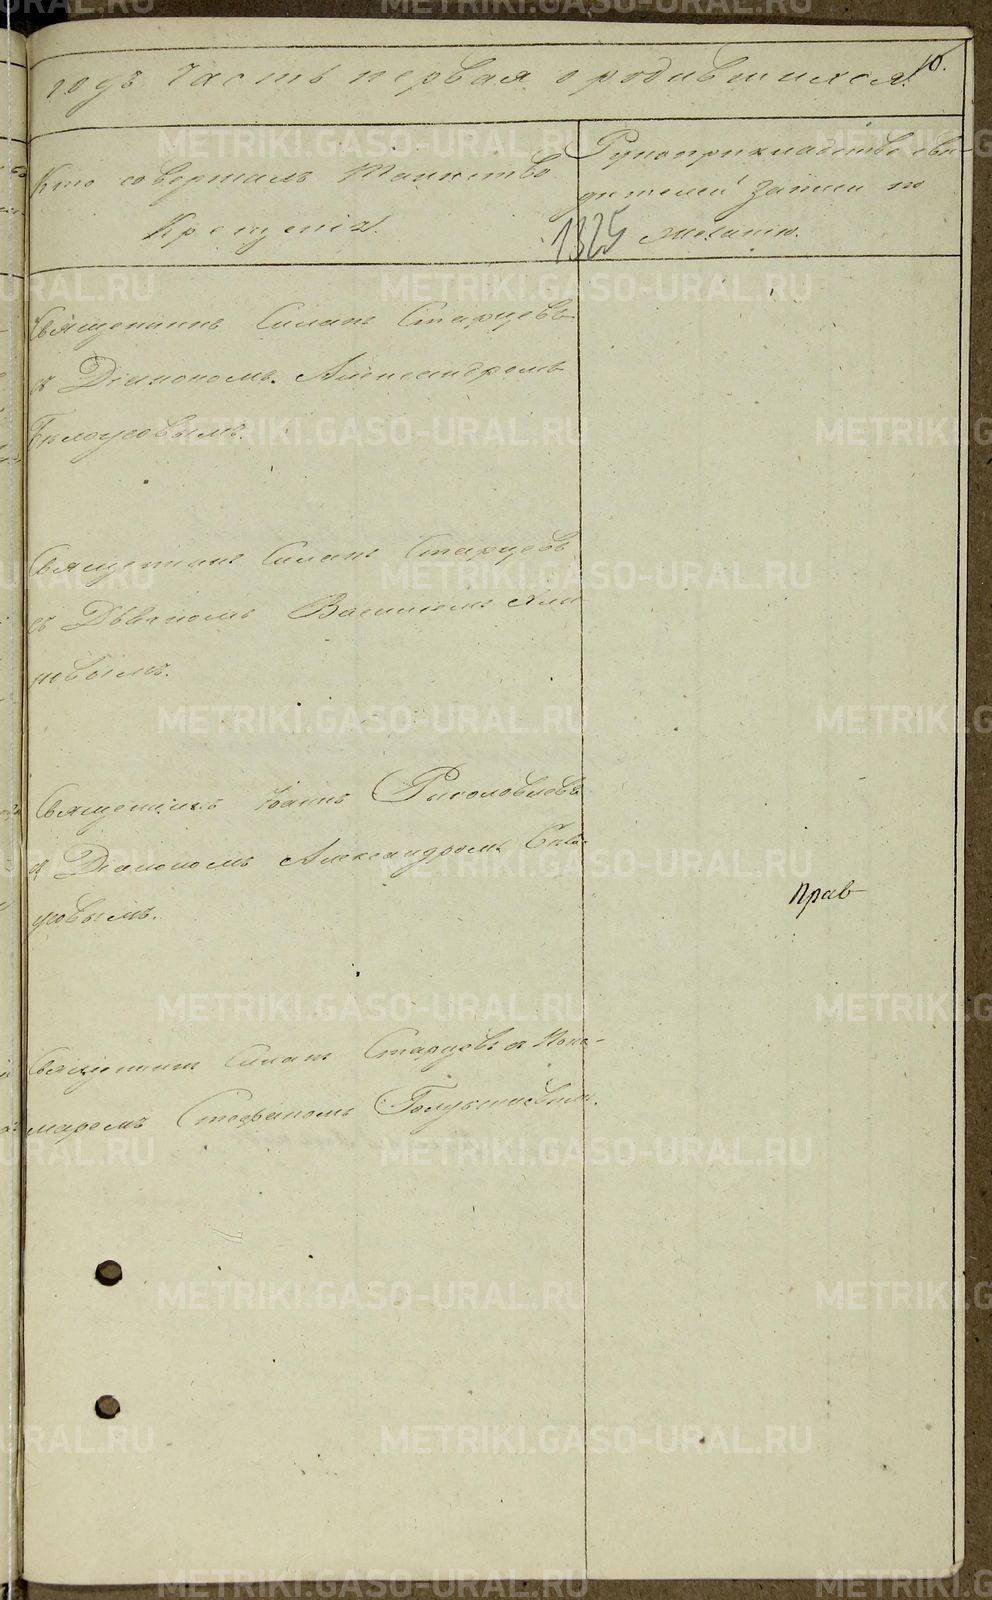 10.
годъ Часть первая о родившихся.
Кто совершалъ Таинство
Крещенія.
Рукоприкладство сви-
дѣтелей записи по
желанію.
1325
Священникъ Симонъ Старцевъ
съ Діакономъ Александромъ
Бѣлоусовымъ.
Священникъ Симонъ Старцевъ
съ Діакономъ Василіемъ
повымъ.
Священникъ Іоаннъ
съ Діакономъ Александромъ Бѣло-
усовымъ.
Священникъ Симонъ Старцевъ съ Поно-
маремъ Стефаномъ
прав
METRIKI.GASO-URAL.RU